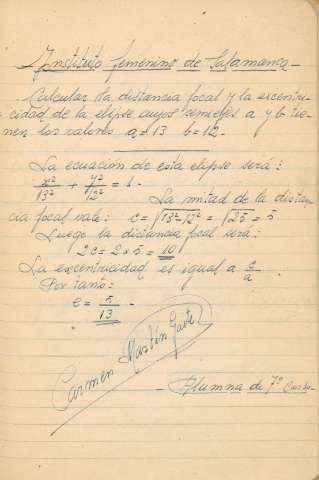 Instituto femenino de Salamanca -
Calcular la distancia focal y la excentri-
cidad de la elipse cuyos semiejes a y b tie-
nen los valores a = 13 b = 12.
La ecuación de esta elipse será:
x²/13² + y²/12² = 1.
La mitad de la distan
cia focal vale: c = √13²-12² = √25 = 5
Luego la distancia focal será:
2c = 2 x 5 = 10
La excentricidad es igual a c/a
Por tanto:
e = 5/13 -
Carmen Martín Gaite
- Alumna de 7º Curso -